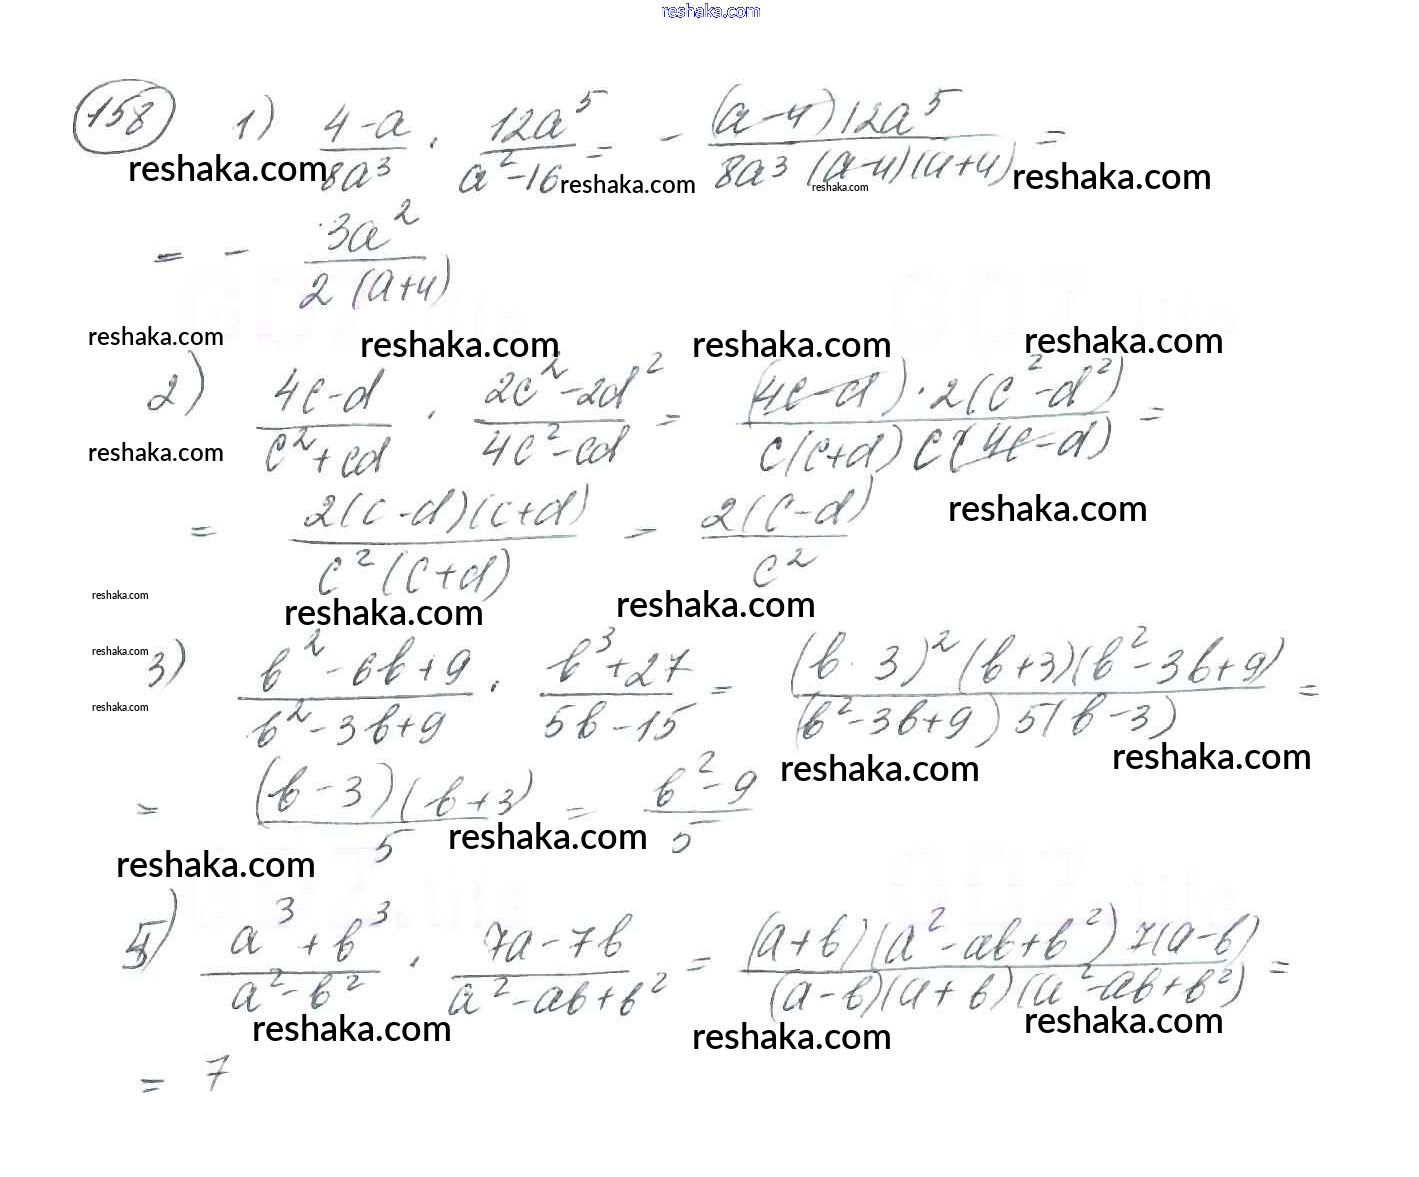 reshaka.com
158 1) (4-a)/(8a³) · (12a⁵)/(a²-16) = - ((a-4)12a⁵)/(8a³(a-4)(a+4)) =
reshaka.com reshaka.com reshaka.com reshaka.com
= - (3a²)/(2(a+4))
reshaka.com reshaka.com reshaka.com reshaka.com
2) (4c-d)/(c²+cd) · (2c²-2d²)/(4c²-cd) = ((4c-d)·2(c²-d²))/(c(c+d)c(4c-d)) =
reshaka.com
= (2(c-d)(c+d))/(c²(c+d)) = (2(c-d))/(c²)
reshaka.com
reshaka.com reshaka.com reshaka.com
3) (b²-6b+9)/(b²-3b+9) · (b³+27)/(5b-15) = ((b-3)²(b+3)(b²-3b+9))/((b²-3b+9)5(b-3)) =
reshaka.com
reshaka.com
reshaka.com reshaka.com
= ((b-3)(b+3))/5 = (b²-9)/5
reshaka.com reshaka.com
4) (a³+b³)/(a²-b²) · (7a-7b)/(a²-ab+b²) = ((a+b)(a²-ab+b²)7(a-b))/((a-b)(a+b)(a²-ab+b²)) =
reshaka.com reshaka.com reshaka.com
= 7